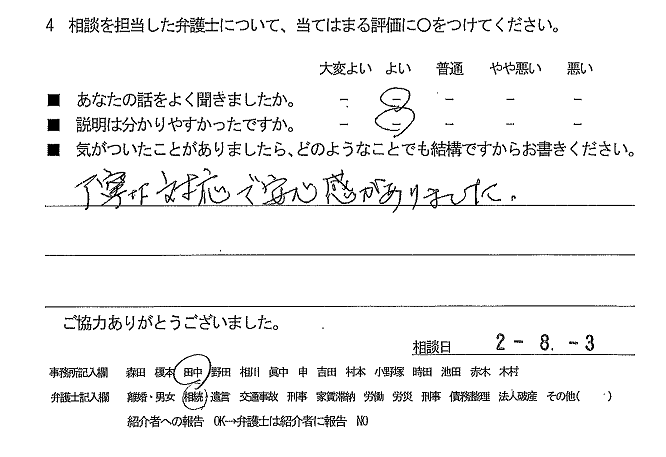 4 相談を担当した弁護士について、当てはまる評価に○をつけてください。
大変よい よい 普通 やや悪い 悪い
■ あなたの話をよく聞きましたか。 － － － － －
■ 説明は分かりやすかったですか。 － － － － －
■ 気がついたことがありましたら、どのようなことでも結構ですからお書きください。
丁寧な対応で安心感がありました。
ご協力ありがとうございました。
相談日 2-8.-3
事務所記入欄 森田 榎本 田中 野田 相川 眞中 申 吉田 村本 小野塚 時田 池田 赤木 木村
弁護士記入欄 離婚・男女 相続 遺言 交通事故 刑事 家賃滞納 労働 労災 刑事 債務整理 法人破産 その他( )
紹介者への報告 OK→弁護士は紹介者に報告 NO